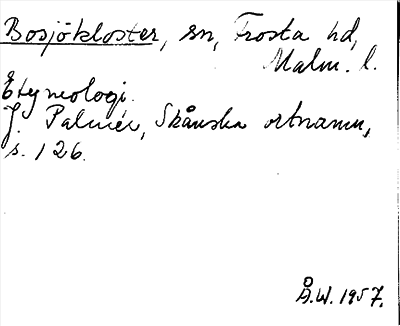 Bosjökloster, sn, Frosta hd,
Malm. l.
Etymologi.
J. Palmér, Skånska ortnamn,
s. 126.
Å.W. 1957.